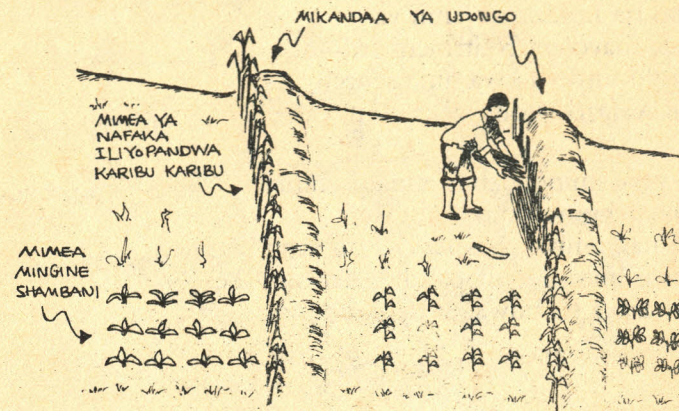 MIKANDAA YA UDONGO
MIMEA YA
NAFAKA
ILIYOPANDWA
KARIBU KARIBU
MIMEA
MINGINE
SHAMBANI